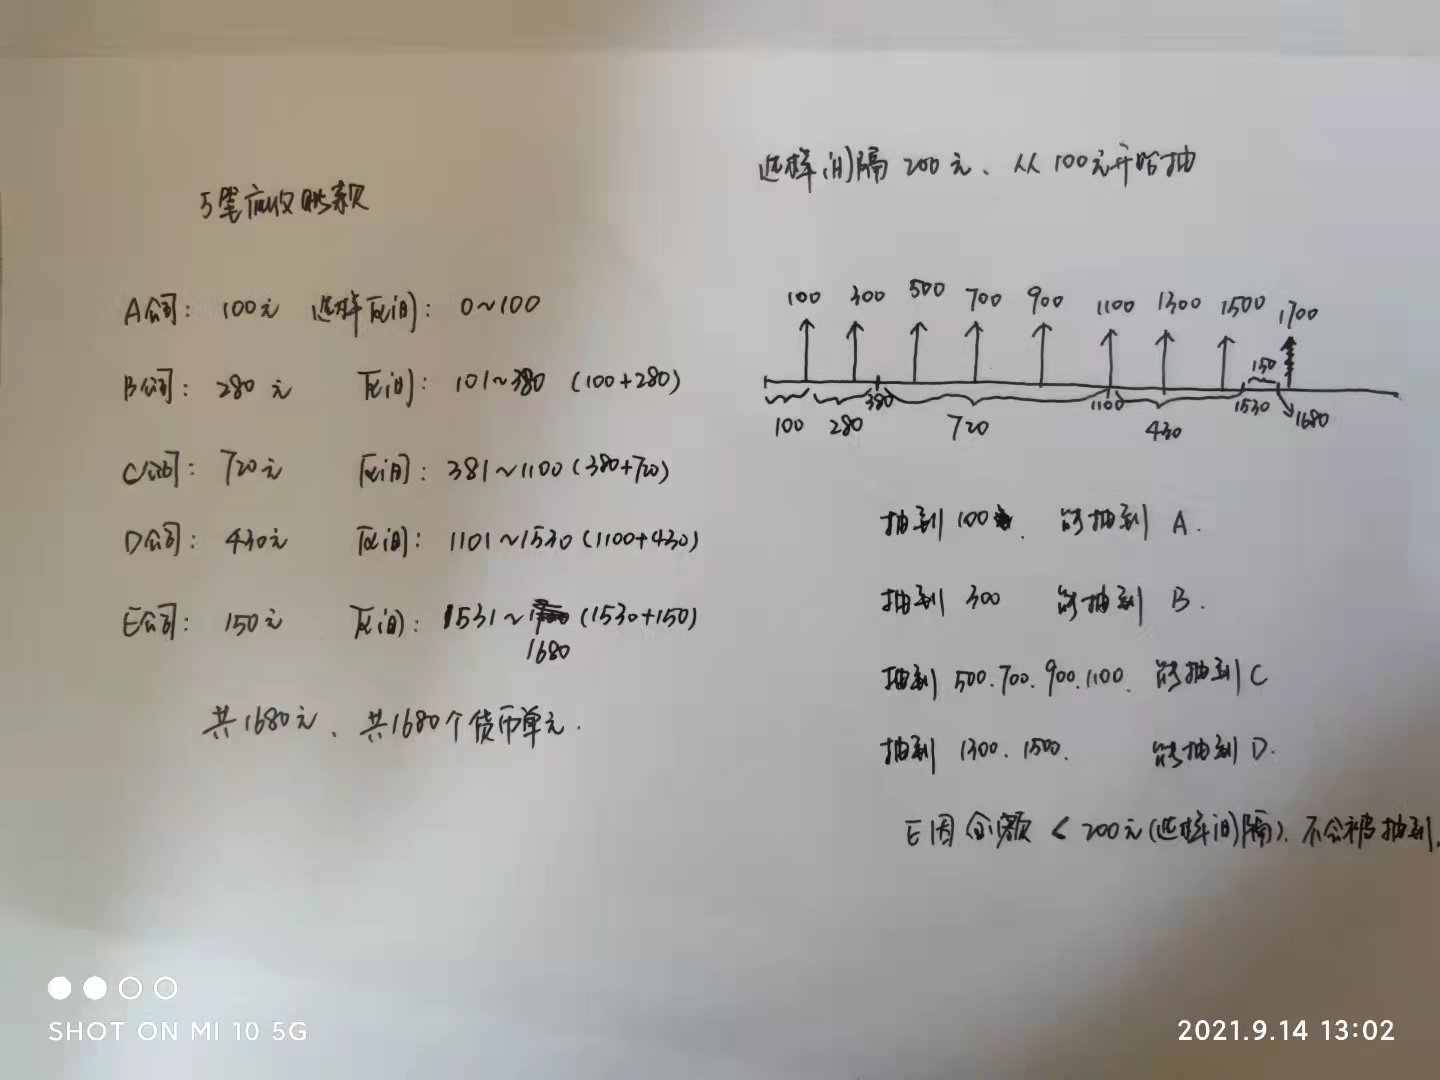 5笔应收账款
A公司: 100元 选样区间: 0~100
B公司: 280元 区间: 101~380 (100+280)
C公司: 720元 区间: 381~1100 (380+720)
D公司: 430元 区间: 1101~1530 (1100+430)
E公司: 150元 区间: 1531~ (1530+150)
1680
共1680元、共1680个货币单元.
选样间隔200元、从100元开始抽
100 300 500 700 900 1100 1300 1500 1700
150
380 1100 1530 1680
100 280 720 430
抽到100. 能抽到 A.
抽到 300 能抽到 B.
抽到 500.700.900.1100. 能抽到C
抽到 1300.1500. 能抽到D.
E因金额<200元(选样间隔)、不会被抽到.
SHOT ON MI 10 5G
2021.9.14 13:02